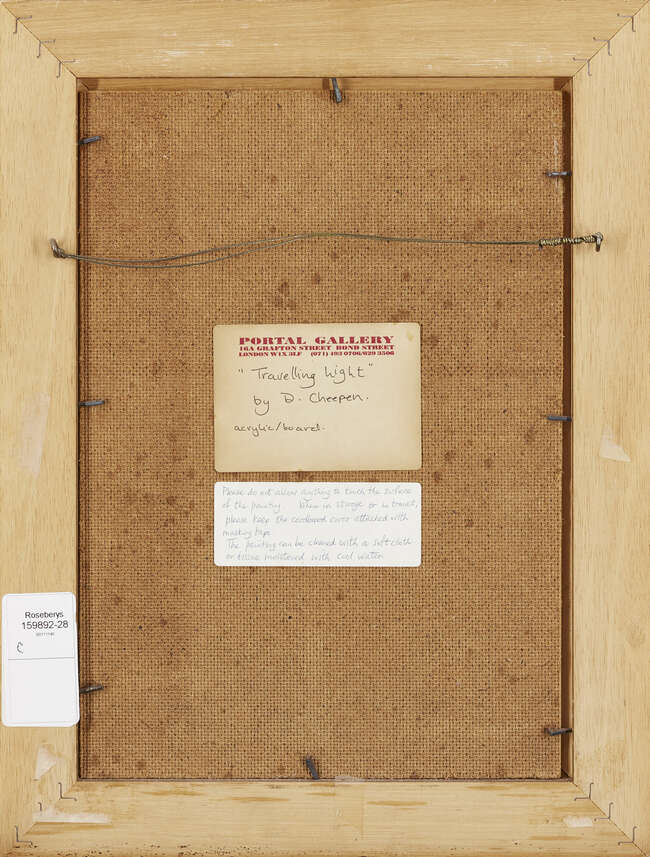 PORTAL GALLERY
16A GRAFTON STREET BOND STREET
LONDON W1X 3LF (071) 493 0706/629 3506
"Travelling Light"
by D. Cheepen.
acrylic/board.
Please do not allow anything to touch the surface
of the painting. When in storage or in transit,
please keep the cardboard cover attached with
masking tape
The painting can be cleaned with a soft cloth
or tissue moistened with cool water
Roseberys
159892-28
C